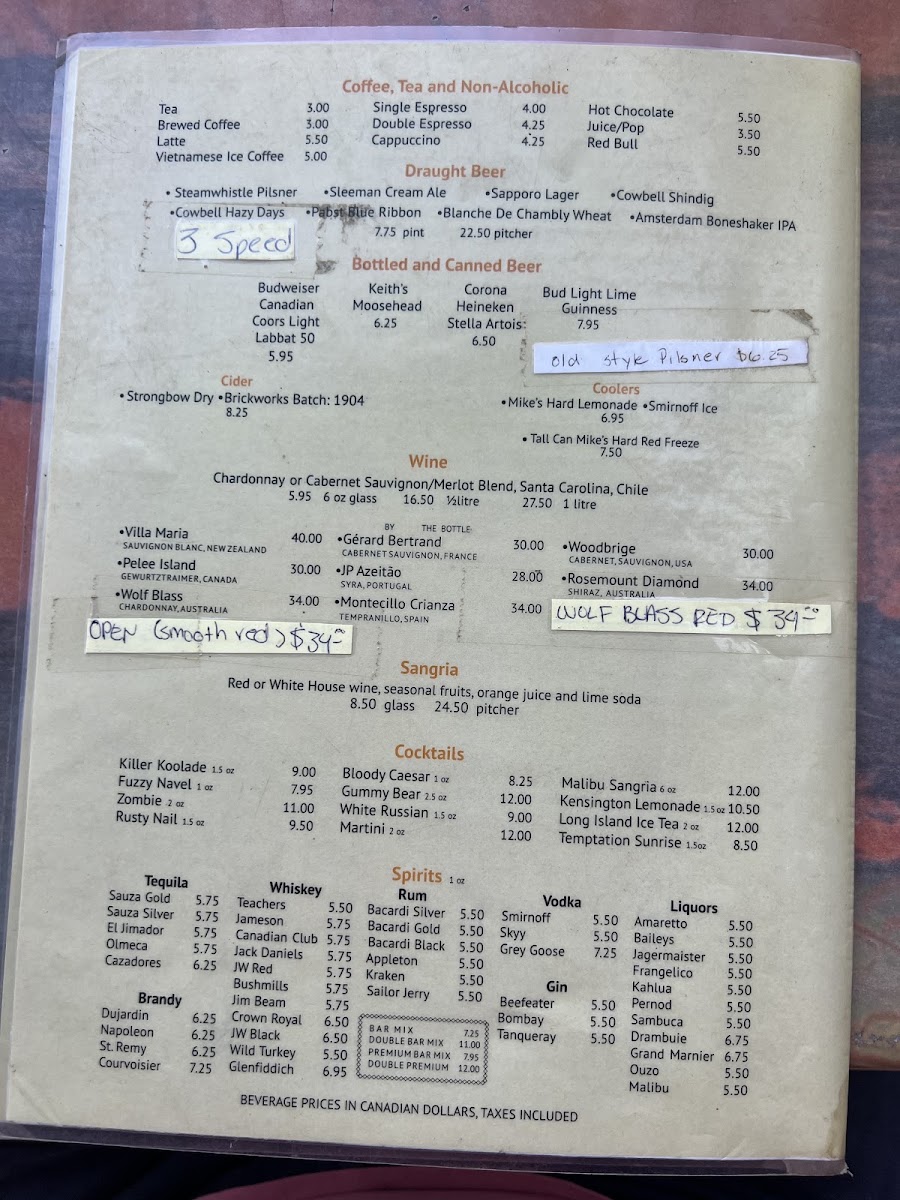 Coffee, Tea and Non-Alcoholic
Tea 3.00 Single Espresso 4.00 Hot Chocolate 5.50
Brewed Coffee 3.00 Double Espresso 4.25 Juice/Pop 3.50
Latte 5.50 Cappuccino 4.25 Red Bull 5.50
Vietnamese Ice Coffee 5.00
Draught Beer
• Steamwhistle Pilsner •Sleeman Cream Ale •Sapporo Lager •Cowbell Shindig
•Cowbell Hazy Days •Pabst Blue Ribbon •Blanche De Chambly Wheat •Amsterdam Boneshaker IPA
3 Speed
7.75 pint 22.50 pitcher
Bottled and Canned Beer
Budweiser Keith's Corona Bud Light Lime
Canadian Moosehead Heineken Guinness
Coors Light 6.25 Stella Artois: 7.95
Labbat 50 6.50
5.95
old style Pilsner $6.25
Cider
•Strongbow Dry •Brickworks Batch: 1904
8.25
Coolers
•Mike's Hard Lemonade •Smirnoff Ice
6.95
• Tall Can Mike's Hard Red Freeze
7.50
Wine
Chardonnay or Cabernet Sauvignon/Merlot Blend, Santa Carolina, Chile
5.95 6 oz glass 16.50 ½litre 27.50 1 litre
BY THE BOTTLE
•Villa Maria 40.00 •Gérard Bertrand 30.00 •Woodbrige 30.00
SAUVIGNON BLANC, NEW ZEALAND CABERNET SAUVIGNON, FRANCE CABERNET, SAUVIGNON, USA
•Pelee Island 30.00 •JP Azeitão 28.00 •Rosemount Diamond 34.00
GEWURTZTRAIMER, CANADA SYRA, PORTUGAL SHIRAZ, AUSTRALIA
•Wolf Blass 34.00 •Montecillo Crianza 34.00
CHARDONNAY, AUSTRALIA TEMPRANILLO, SPAIN
OPEN (smooth red) $34.00 WOLF BLASS RED $34.00
Sangria
Red or White House wine, seasonal fruits, orange juice and lime soda
8.50 glass 24.50 pitcher
Cocktails
Killer Koolade 1.5 oz 9.00 Bloody Caesar 1 oz 8.25 Malibu Sangria 6 oz 12.00
Fuzzy Navel 1 oz 7.95 Gummy Bear 2.5 oz 12.00 Kensington Lemonade 1.5 oz 10.50
Zombie 2 oz 11.00 White Russian 1.5 oz 9.00 Long Island Ice Tea 2 oz 12.00
Rusty Nail 1.5 oz 9.50 Martini 2 oz 12.00 Temptation Sunrise 1.5oz 8.50
Spirits 1 oz
Tequila
Sauza Gold 5.75
Sauza Silver 5.75
El Jimador 5.75
Olmeca 5.75
Cazadores 6.25
Brandy
Dujardin 6.25
Napoleon 6.25
St. Remy 6.25
Courvoisier 7.25
Whiskey
Teachers 5.50
Jameson 5.75
Canadian Club 5.75
Jack Daniels 5.75
JW Red 5.75
Bushmills 5.75
Jim Beam 5.75
Crown Royal 6.50
JW Black 6.50
Wild Turkey 5.50
Glenfiddich 6.95
Rum
Bacardi Silver 5.50
Bacardi Gold 5.50
Bacardi Black 5.50
Appleton 5.50
Kraken 5.50
Sailor Jerry 5.50
BAR MIX 7.25
DOUBLE BAR MIX 11.00
PREMIUM BAR MIX 7.95
DOUBLE PREMIUM 12.00
Vodka
Smirnoff 5.50
Skyy 5.50
Grey Goose 7.25
Gin
Beefeater 5.50
Bombay 5.50
Tanqueray 5.50
Liquors
Amaretto 5.50
Baileys 5.50
Jagermaister 5.50
Frangelico 5.50
Kahlua 5.50
Pernod 5.50
Sambuca 5.50
Drambuie 6.75
Grand Marnier 6.75
Ouzo 5.50
Malibu 5.50
BEVERAGE PRICES IN CANADIAN DOLLARS, TAXES INCLUDED